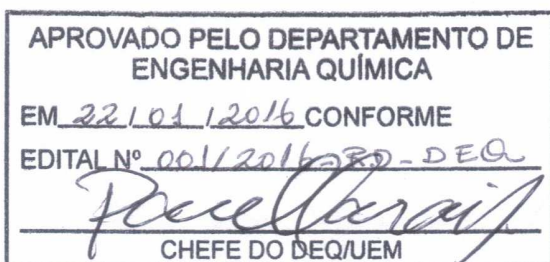 APROVADO PELO DEPARTAMENTO DE
ENGENHARIA QUÍMICA
EM 22/01/2016 CONFORME
EDITAL Nº 001/2016-RD-DEQ
CHEFE DO DEQ/UEM